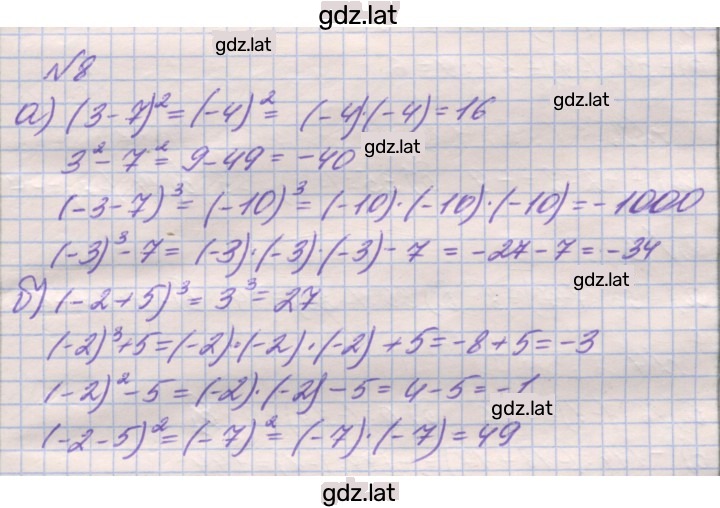 gdz.lat
gdz.lat
№8
а) (3-7)² = (-4)² = (-4)·(-4) = 16
gdz.lat
3² - 7² = 9 - 49 = -40
gdz.lat
(-3-7)³ = (-10)³ = (-10)·(-10)·(-10) = -1000
(-3)³ - 7 = (-3)·(-3)·(-3) - 7 = -27 - 7 = -34
gdz.lat
б) (-2+5)³ = 3³ = 27
(-2)³ + 5 = (-2)·(-2)·(-2) + 5 = -8 + 5 = -3
(-2)² - 5 = (-2)·(-2) - 5 = 4 - 5 = -1
gdz.lat
(-2-5)² = (-7)² = (-7)·(-7) = 49
gdz.lat